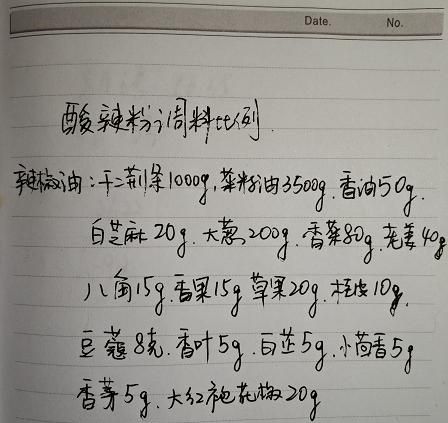 Date. No.
酸辣粉调料比例.
辣椒油:干二荆条1000g,菜籽油3500g.香油50g.
白芝麻20g.大葱200g.香菜80g.老姜40g
八角15g.香果15g草果20g.桂皮10g.
豆蔻8克.香叶5g.白芷5g.小茴香5g
香芽5g.大红袍花椒20g